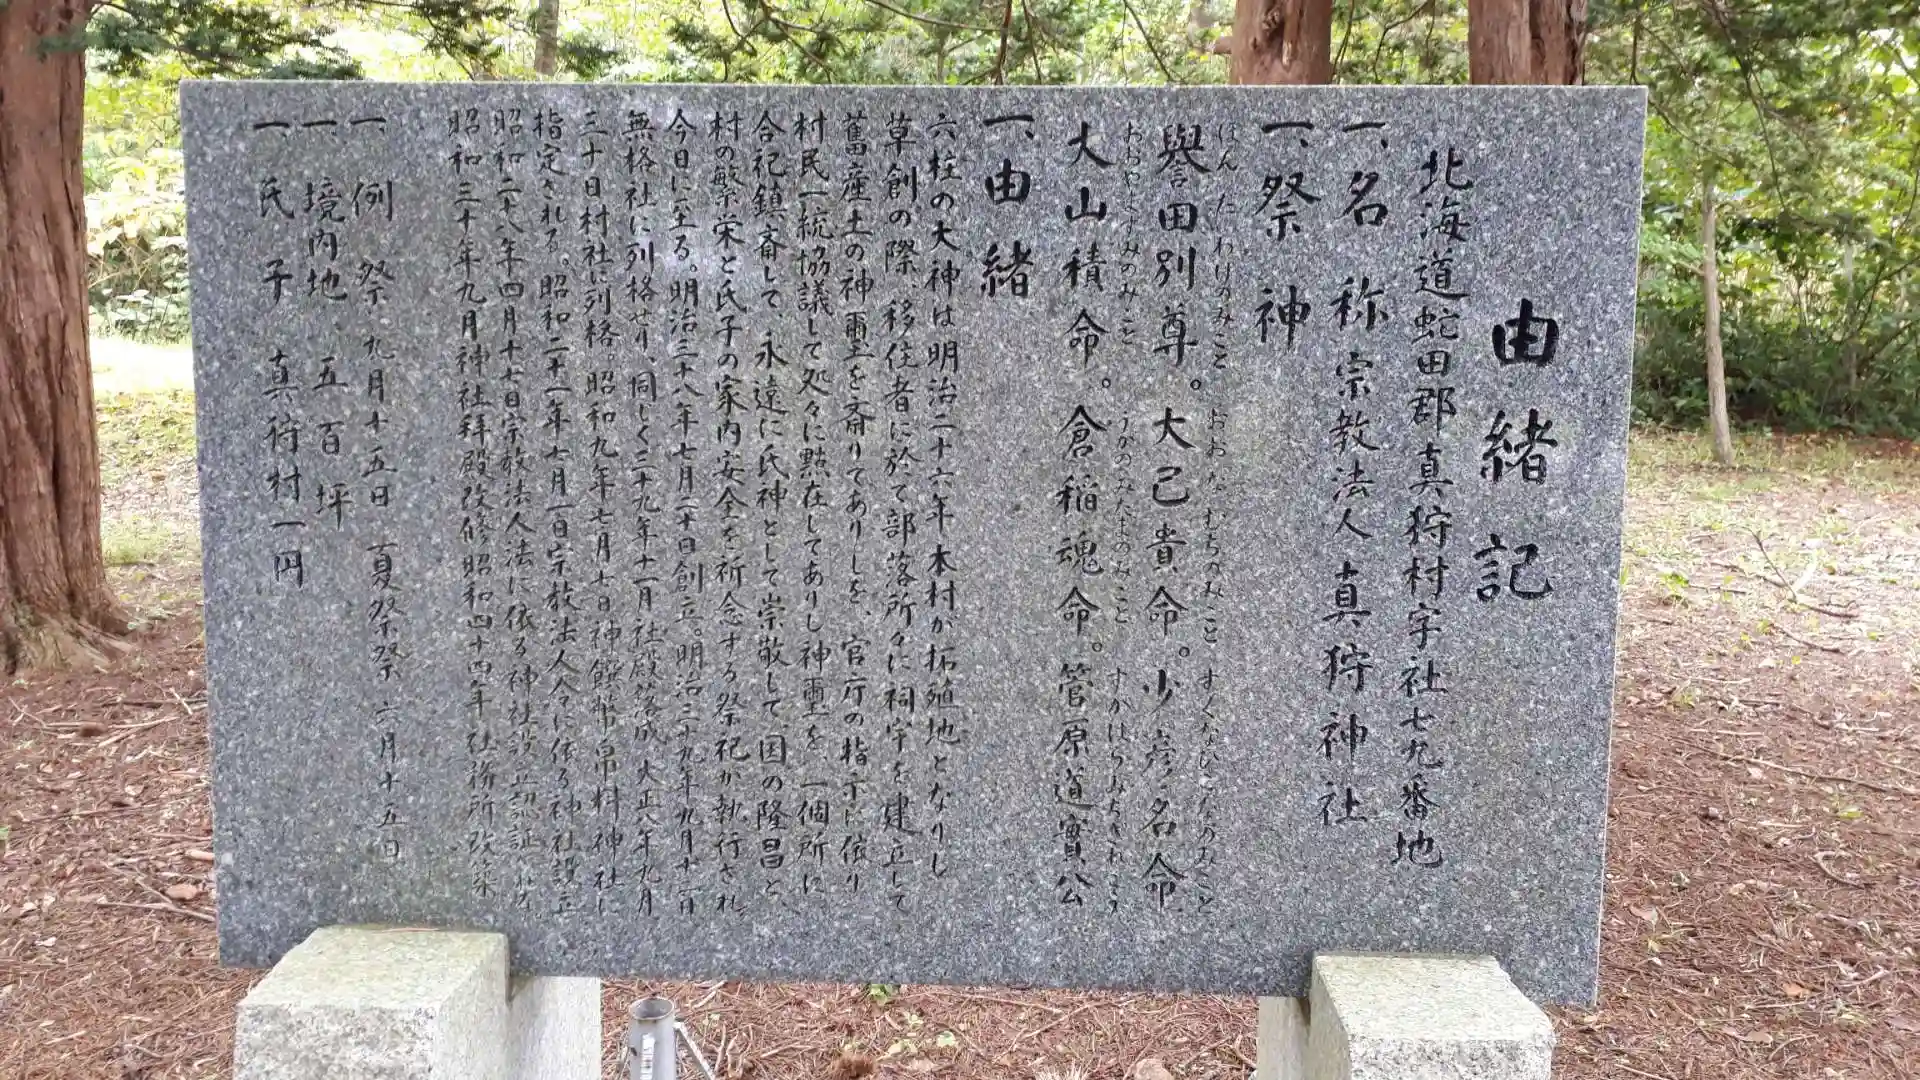 由緒記
北海道蛇田郡真狩村字社七九番地
一、名称 宗教法人真狩神社
一、祭神
ほんだわけのみこと おおなむちのみこと すくなひこなのみこと
譽田別尊。大己貴命。少彦名命
おおやまずみのみこと うがのみたまのみこと すがはらみちざねこう
大山積命。倉稲魂命。管原道實公
一、由緒
六柱の大神は明治二十六年本村が拓殖地となりし
草創の際、移住者に於て部落所々に祠宇を建立して
舊産土の神璽を斎りてありしを、官庁の指示に依り
村民一統協議して処々に點在してありし神璽を、一個所に
合祀鎮斎して、永遠に氏神として崇敬して、国の隆昌と、
村の繁栄と氏子の家内安全を祈念する祭祀が執行され、
今日に至る。明治三十八年七月二十日創立。明治三十九年九月十二日
無格社に列格せり、同じく三十九年十一月社殿落成 大正八年九月
三十日村社に列格。昭和九年七月十日神饌幣帛料神社に
指定される。昭和二十一年七月一日宗教法人令に依る神社設立
昭和二十八年四月十七日宗教法人法に依る神社設立認証される。
昭和三十年九月神社拜殿改修昭和四十四年社務所改築
一、例祭 九月十五日 夏祭祭 六月十五日
一、境内地 五百坪
一、氏子 真狩村一円